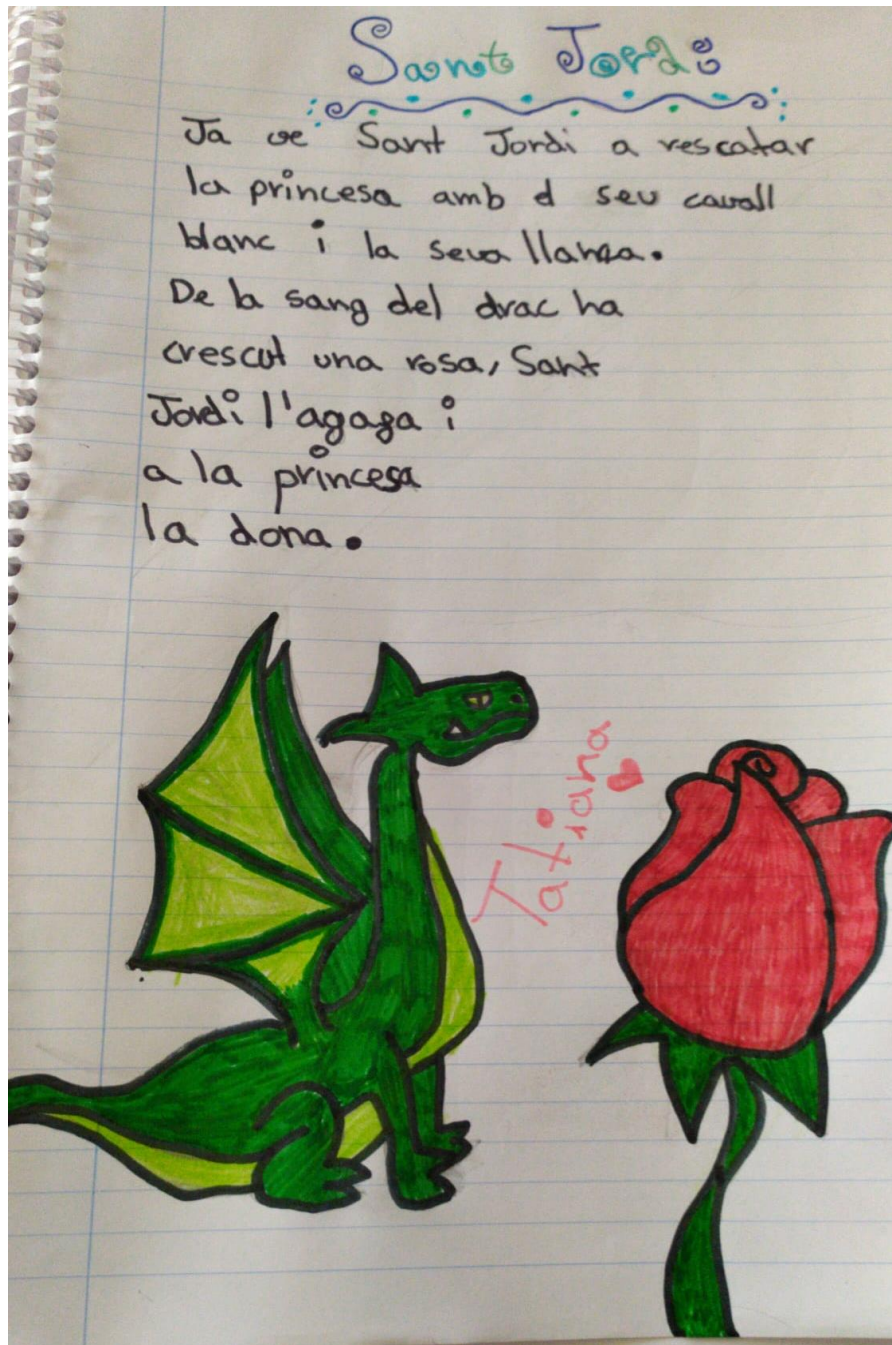 Sant Jordi
Ja ve Sant Jordi a rescatar
la princesa amb el seu cavall
blanc i la seva llança.
De la sang del drac ha
crescut una rosa, Sant
Jordi l'agaga i
a la princesa
la dona.
Tatiana